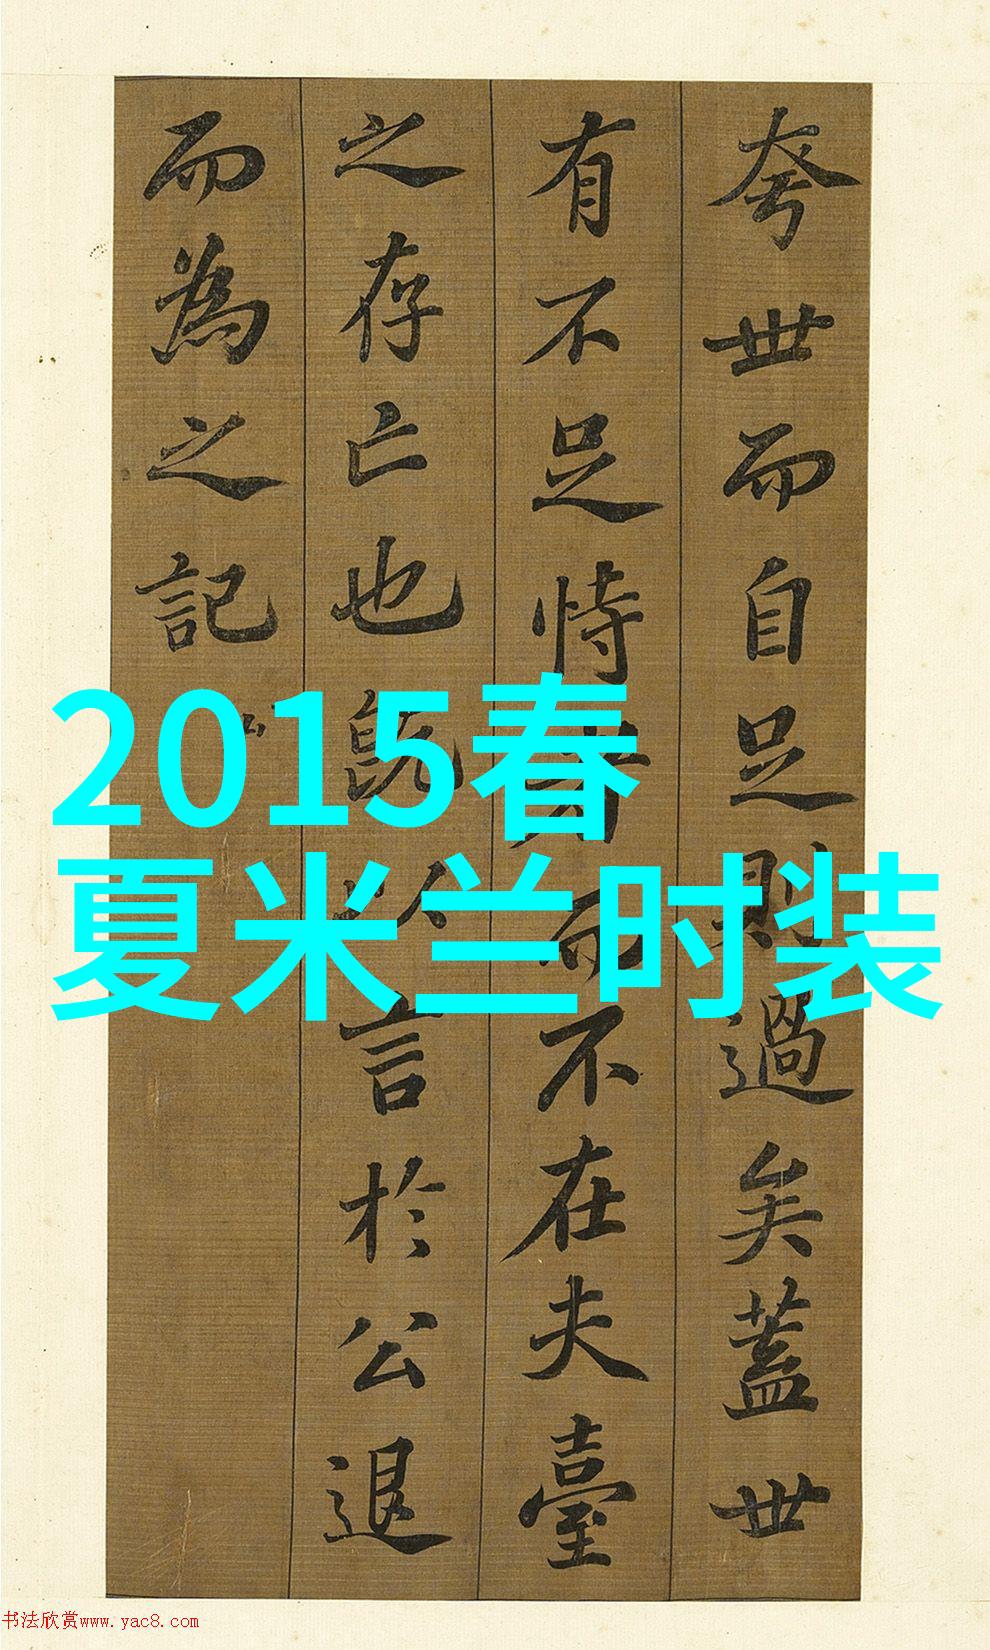 夸世而自足則過矣蓋世
有不足恃者而不在夫臺
之存亡也既以言於公退
而為之記
2015春
夏米兰时装
书法欣赏www.yac8.com